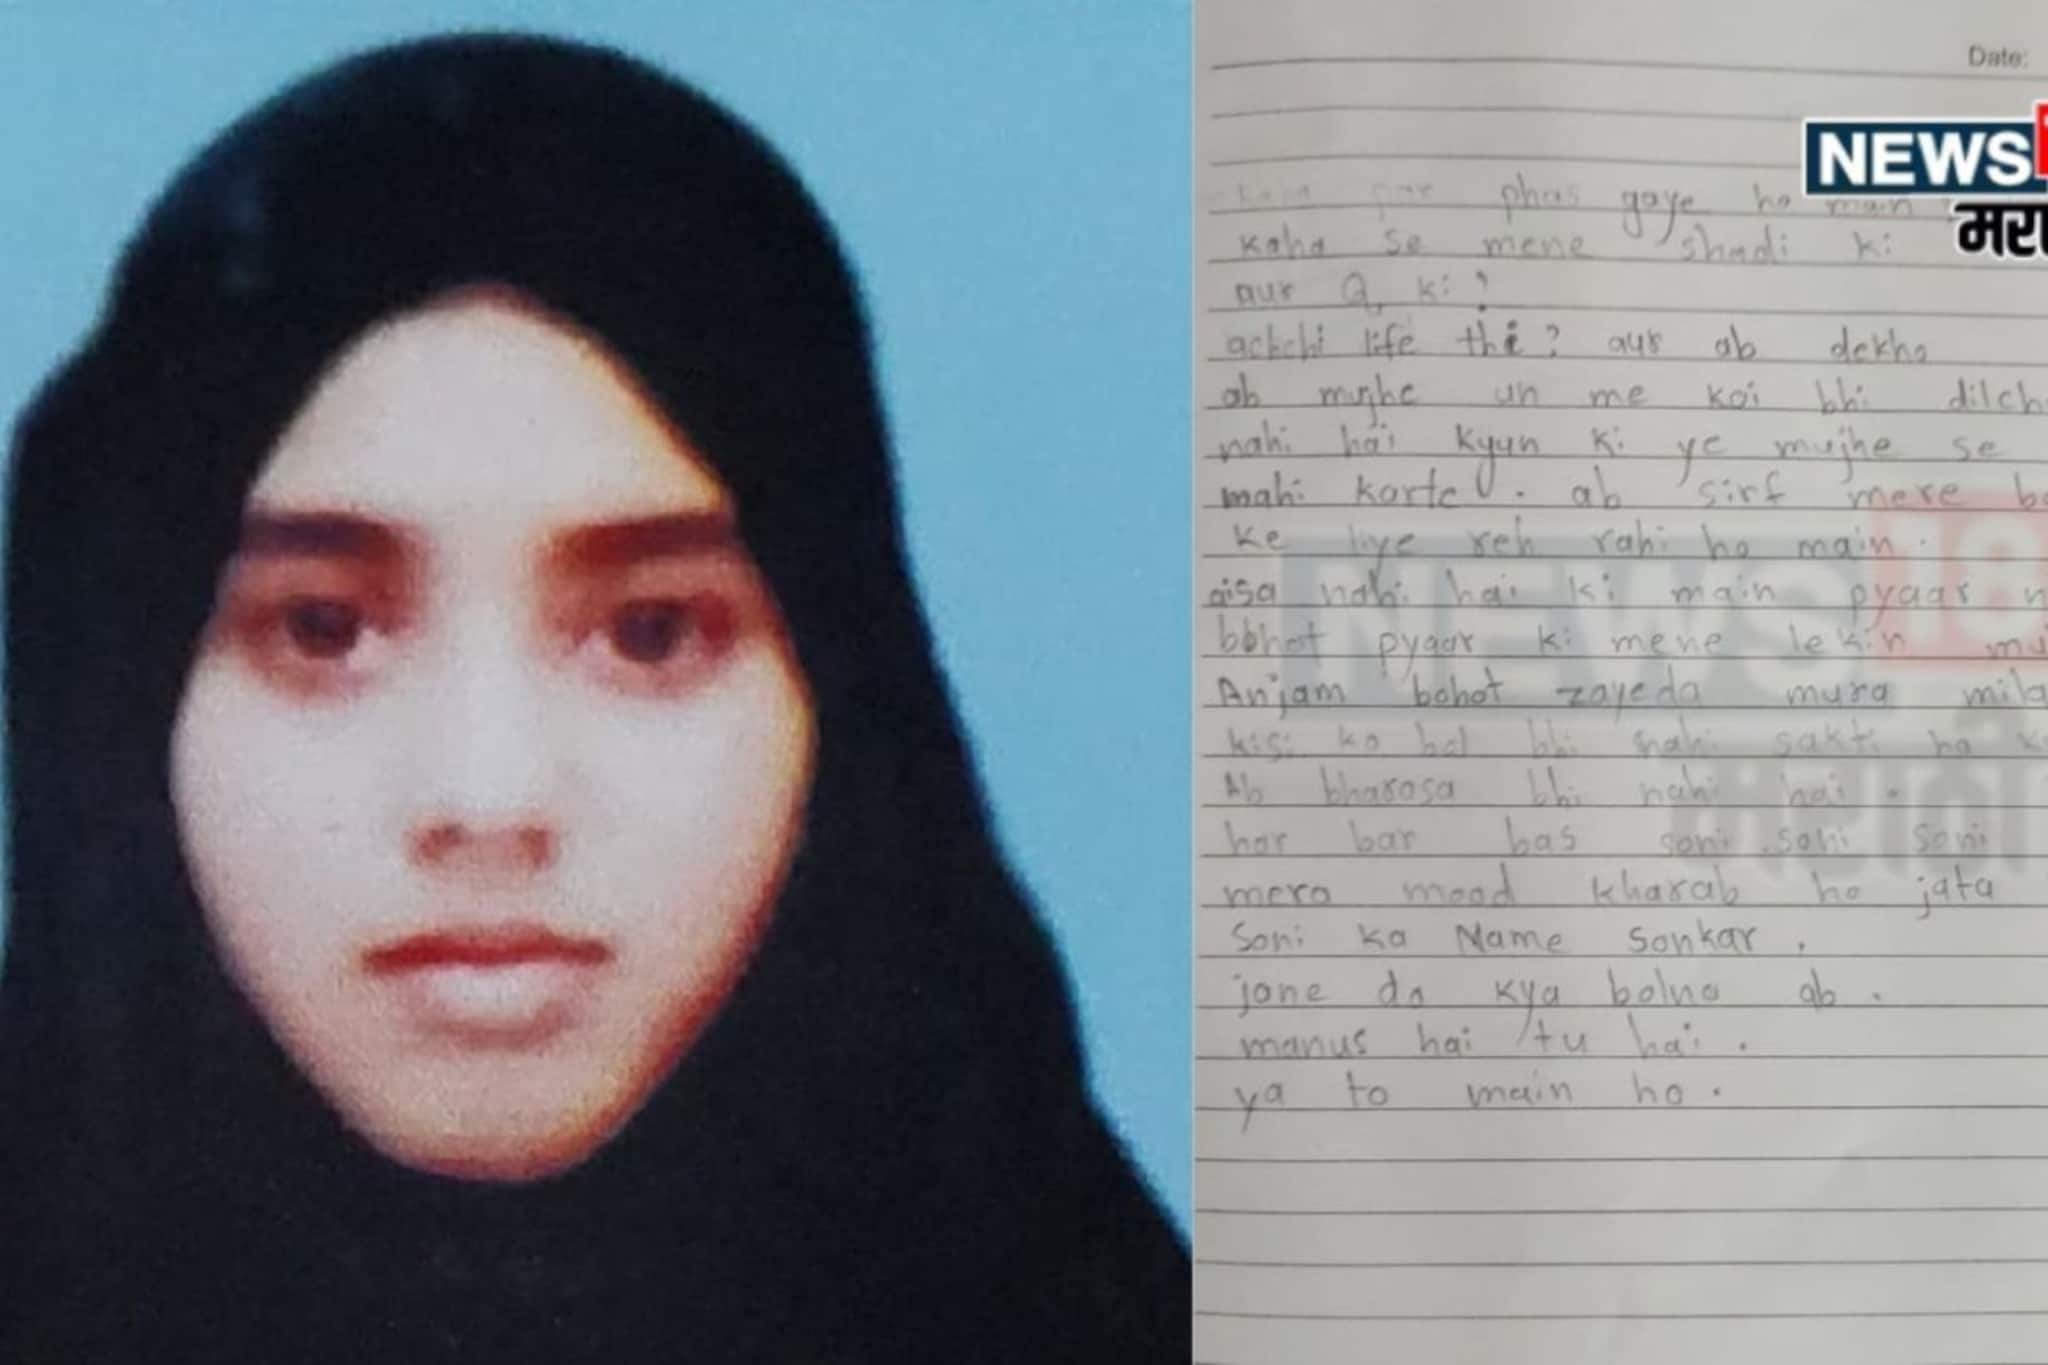 Date:
NEWS
मरा
phas gaye ho main
kaha se mene shadi ki
aur Q ki ?
achchi life thi ? aur ab dekho
ab mujhe un me koi bhi dilch
nahi hai kyun ki ye mujhe se
mahi karte . ab sirf mere b
ke liye reh rahi ho main .
aisa nahi hai ki main pyaar n
bohot pyaar ki mene lekin mu
Anjam bohot zayeda mura mila
kisi ko bol bhi nahi sakti ho k
Ab bharosa bhi nahi hai .
har bar bas soni soni soni
mera mood kharab ho jata
Soni ka Name Sonkar .
jane do kya bolna ab .
manus hai tu hai .
ya to main ho .
NEWS18